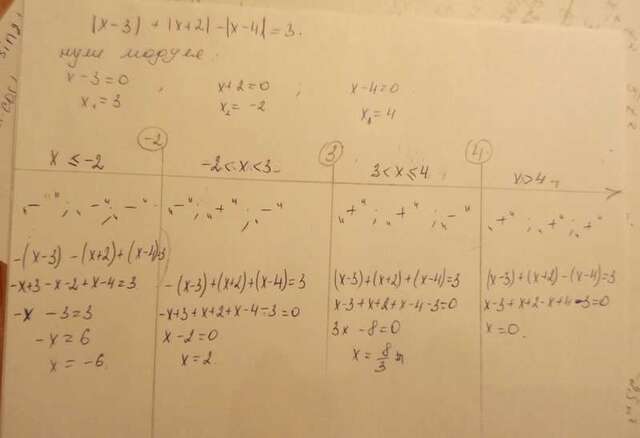 |x-3| + |x+2| - |x-4| = 3.
нули модуля:
x-3=0 , x+2=0 ; x-4=0
x₁=3 x₂= -2 x₃=4
-2 3 4
x ≤ -2 -2<x<3 3<x≤4 x>4
"-" ; "-" ; "-" "-" ; "+" ; "-" "+" ; "+" ; "-" "+" ; "+" ; "+"
-(x-3) -(x+2)+(x-4)=3 -(x-3)+(x+2)+(x-4)=3 (x-3)+(x+2)+(x-4)=3 (x-3)+(x+2)-(x-4)=3
-x+3-x-2+x-4=3 -x+3+x+2+x-4-3=0 x-3+x+2+x-4-3=0 x-3+x+2-x+4-3=0
-x -3=3 x-2=0 3x -8=0 x=0.
-x=6 x=2. x= 8/3
x=-6